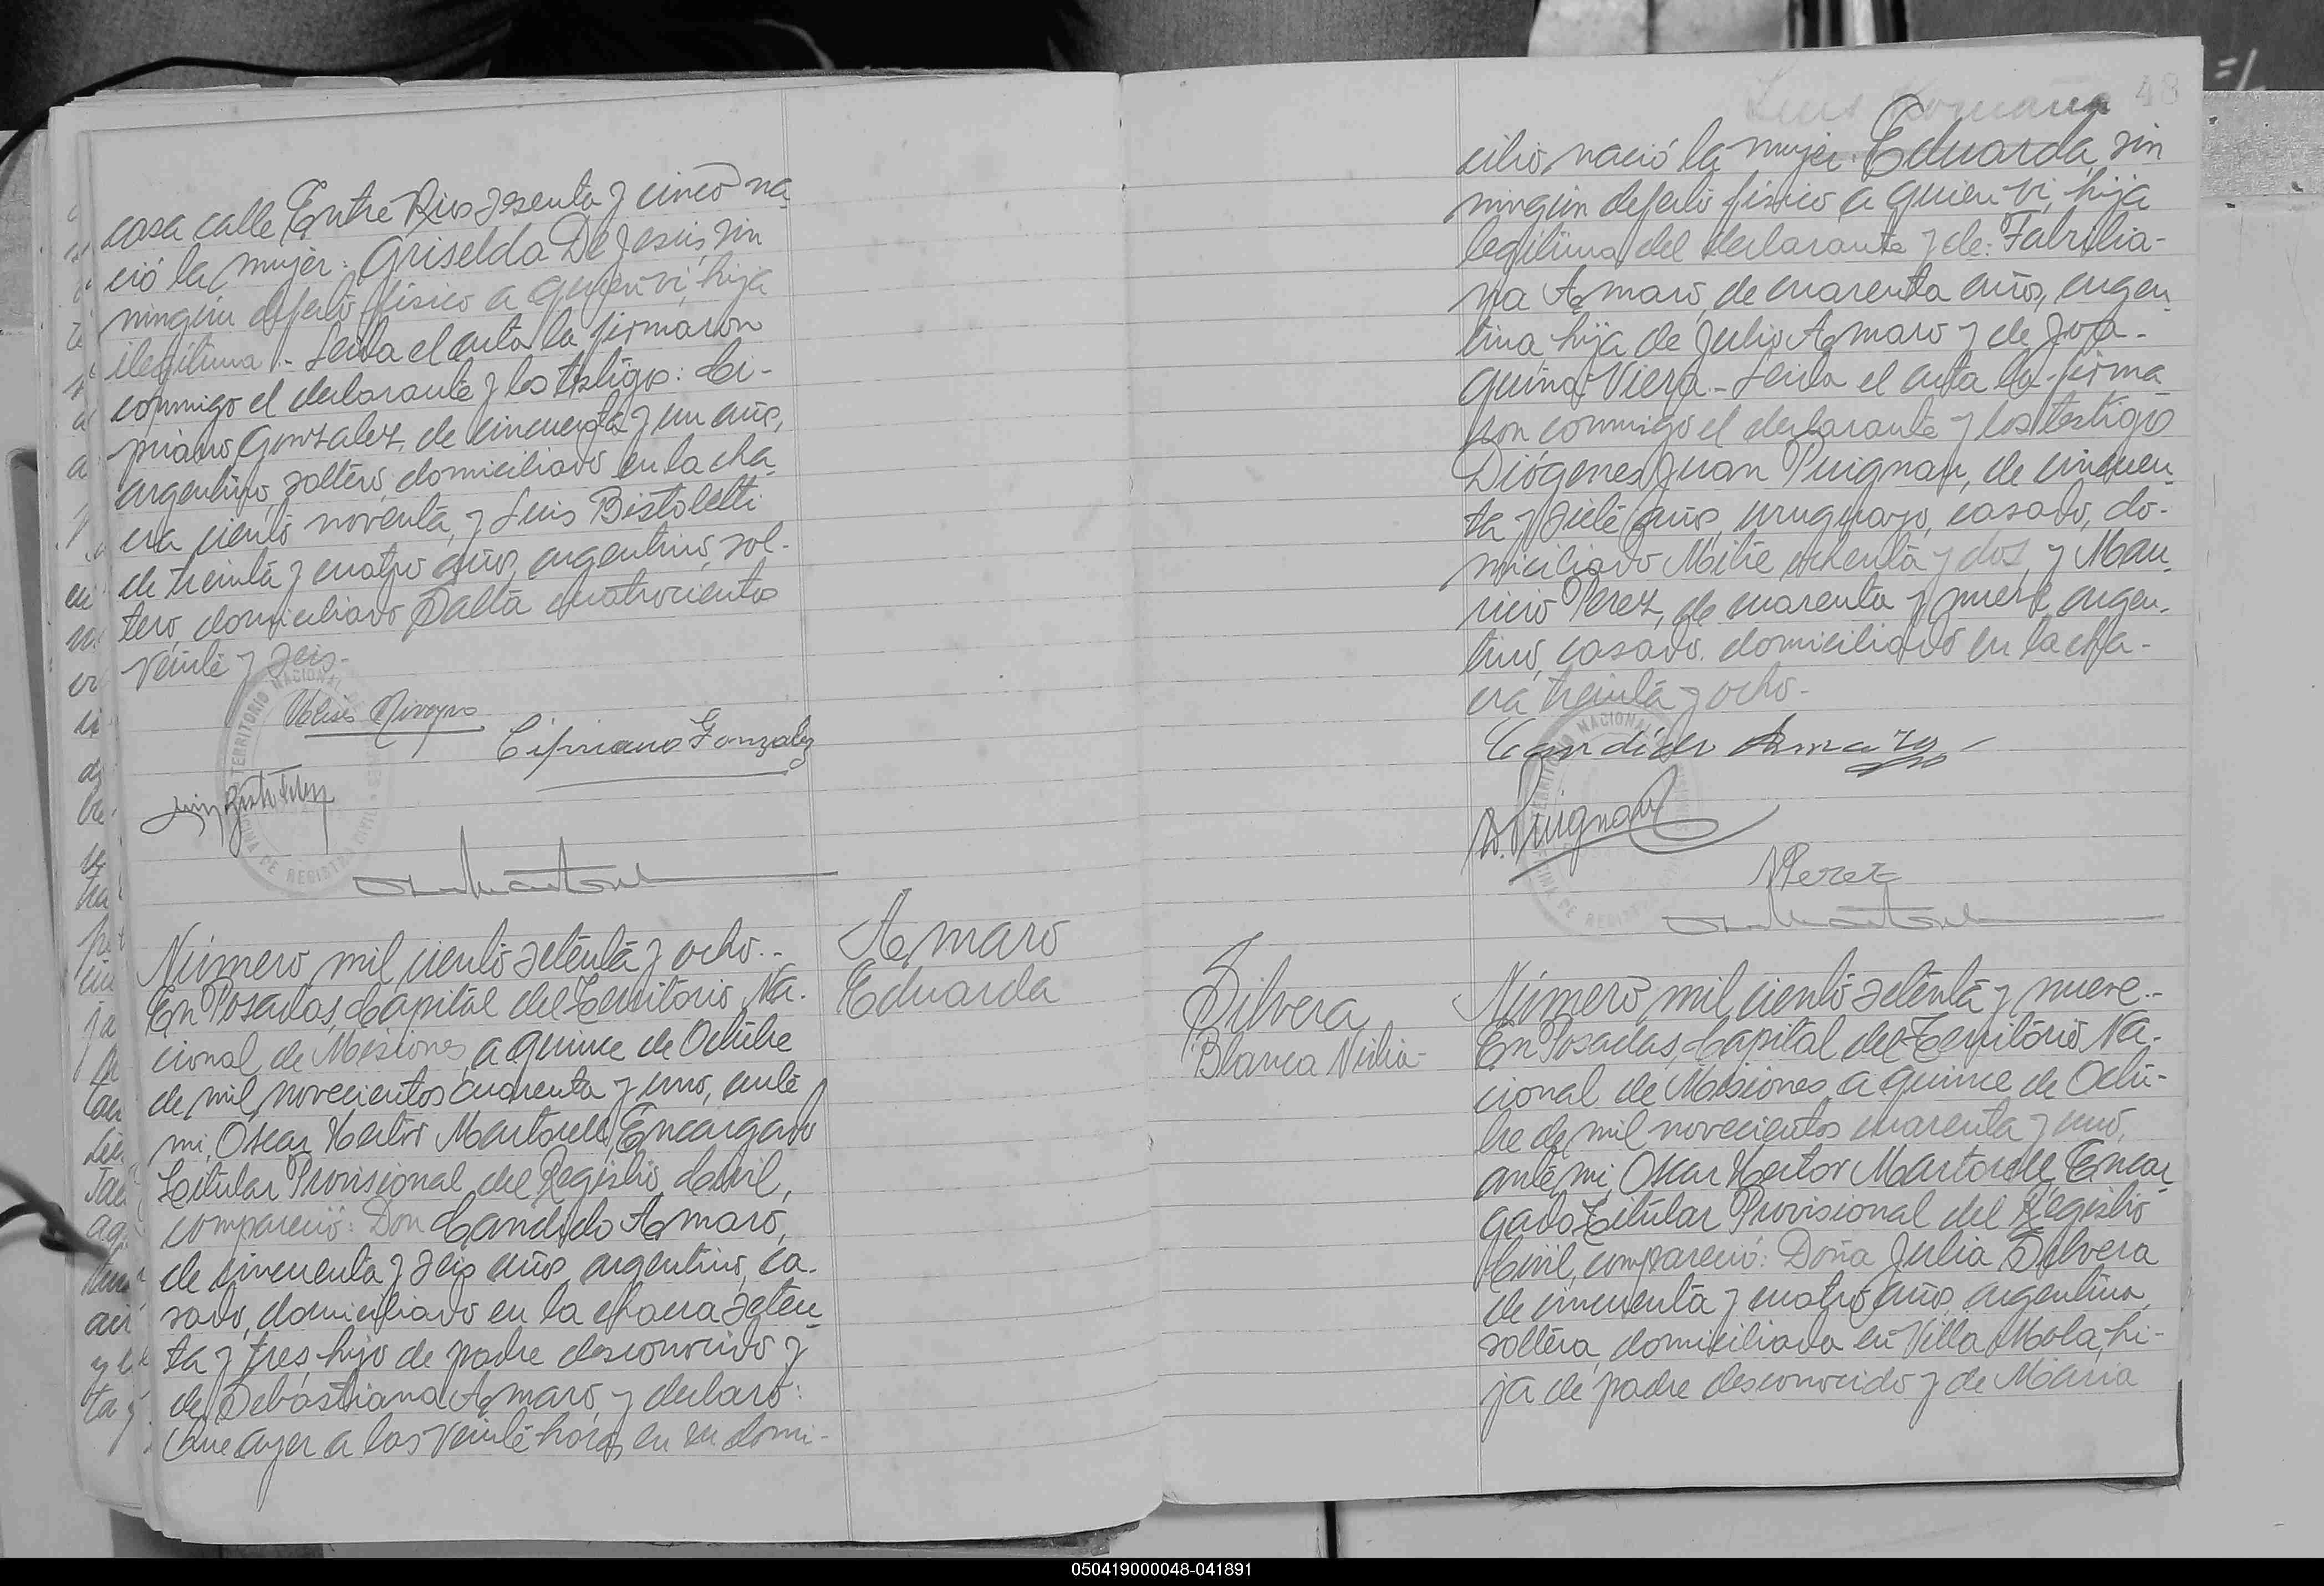 casa calle Entre Rios sesenta y cinco na-
ció la mujer: Griselda De Jesús, sin
ningún defecto físico a quien vi, hija
ilegítima.- Leida el acta la firmaron
conmigo el declarante y los testigos: Ci-
priano Gonzalez, de cincuenta y un años,
argentino, soltero, domiciliado en la cha-
cra ciento noventa, y Luis Bistoletti
de treinta y cuatro años, argentino, sol-
tero, domiciliado Salta cuatrocientos
veinte y seis.-
Cipriano Gonzalez
TERRITORIO NACIONAL
DE REGISTRO CIVIL
Amaro
Eduarda
Número mil ciento setenta y ocho.-
En Posadas, Capital del Territorio Na-
cional de Misiones, a quince de Octubre
de mil novecientos cuarenta y uno, ante
mi, Oscar Hector Martorell, Encargado
Titular Provisional del Registro Civil,
compareció: Don Cándido Amaro,
de cincuenta y seis años, argentino, ca-
sado, domiciliado en la chacra seten-
ta y tres, hijo de padre desconocido y
de Sebastiana Amaro, y declaró:
Que ayer a las veinte horas, en su domi-
48
cilio, nació la mujer: Eduarda, sin
ningún defecto físico a quien vi, hija
legítima del declarante y de: Fabricia-
na Amaro, de cuarenta años, argen-
tina, hija de Julio Amaro y de Joa-
quina Viera.- Leida el acta la firma-
ron conmigo el declarante y los testigos
Diógenes Juan Puignau, de cincuen-
ta y siete años, uruguayo, casado, do-
miciliado Mitre ochenta y dos, y Mau-
ricio Perez, de cuarenta y nueve, argen-
tino, casado, domiciliado en la cha-
cra treinta y ocho.-
Candido Amaro
D. Puignau
MPerez
NACIONAL
Silvera
Blanca Nidia-
Número mil ciento setenta y nueve.-
En Posadas, Capital del Territorio Na-
cional de Misiones, a quince de Octu-
bre de mil novecientos cuarenta y uno,
ante mi, Oscar Hector Martorell, Encar-
gado Titular Provisional del Registro
Civil, compareció: Doña Julia Silvera
de cincuenta y cuatro años, argentina,
soltera, domiciliada en Villa Mola, hi-
ja de padre desconocido y de Maria
050419000048-041891